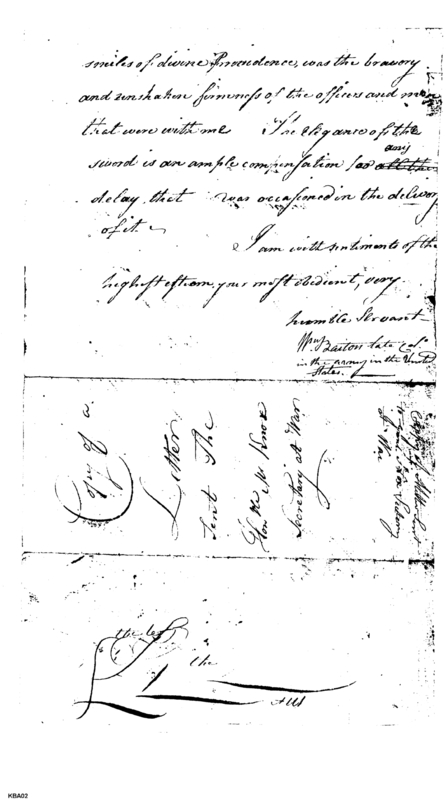 smiles of divine Providence, was the bravery
and unshaken firmness of the officers and men
that were with me The Elegance of the
any
sword is an ample compensation for all the
delay, that was occassioned in the delivery
of it
I am with sentiments of the
highest esteem, your most obedient, very
humble Servant
Wm Barton late Col.
in the army in the United
States.
Copy of a
Letter
Sent The
Honble Mr Knox
Secretary at War
the
KBA02